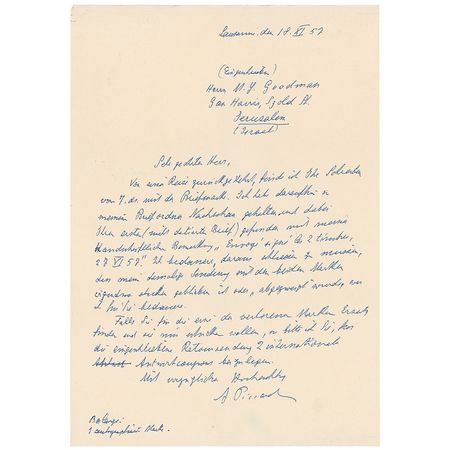 Lausanne, den 18 XI 57
(Einschreiben)
Herrn M. Y. Goodman
Gan Harris, Szold St.
Jerusalem
(Israel)
Sehr geehrter Herr,
Von einer Reise zurückgekehrt, finde ich Ihr Schreiben
vom 7. ds. mit der Briefmarke. Ich habe daraufhin in
meinen Briefordnern Nachschau gehalten und dabei
Ihren ersten (nicht datierten Brief) gefunden mit meiner
Handschriftlichen Bemerkung "Envoyé signé les 2 timbres,
27 VI 57" Ich bedauere, daraus schliessen zu müssen,
dass meine Sendung mit den beiden Marken
irgendwo stecken geblieben ist oder wurde, was
ich bedauere.
Falls Sie für die eine der verlorenen Marken Ersatz
finden und sie mir schicken wollen, so bitte ich Sie, für
die Retoursendung 2 international
Antwortcoupons beizulegen.
Mit vorzüglicher Hochachtung
A Piccard
Beilage:
1 Marke.